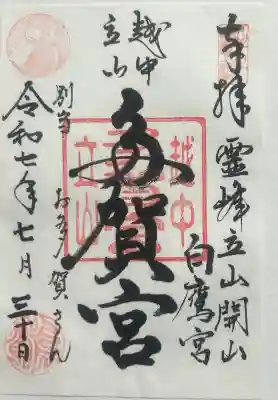 奉拝
霊峰立山開山
白鷹宮
越中
立山
多賀宮
別当 お多賀さん
令和七年七月三十日
越中
立山